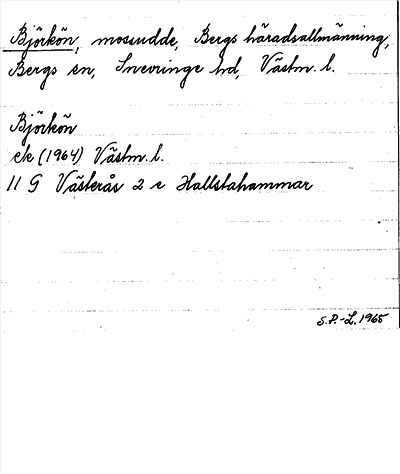 Björkön, mossudde, Bergs häradsallmänning,
Bergs sn, Snevringe hd, Västm. l.
Björkön
ek (1964) Västm. l.
11 G Västerås 2 c Hallstahammar
S.P.-L. 1965